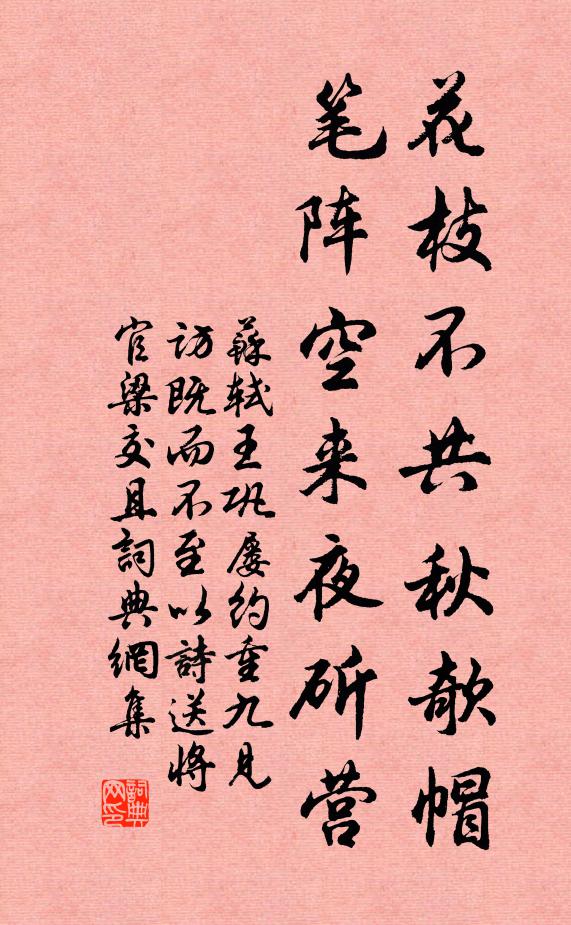 花枝不共秋欹帽
笔阵空来夜斫营
蘇轼王巩屡约重九見
访既而不至以詩送將
官梁交且詞典網集
詞典网印